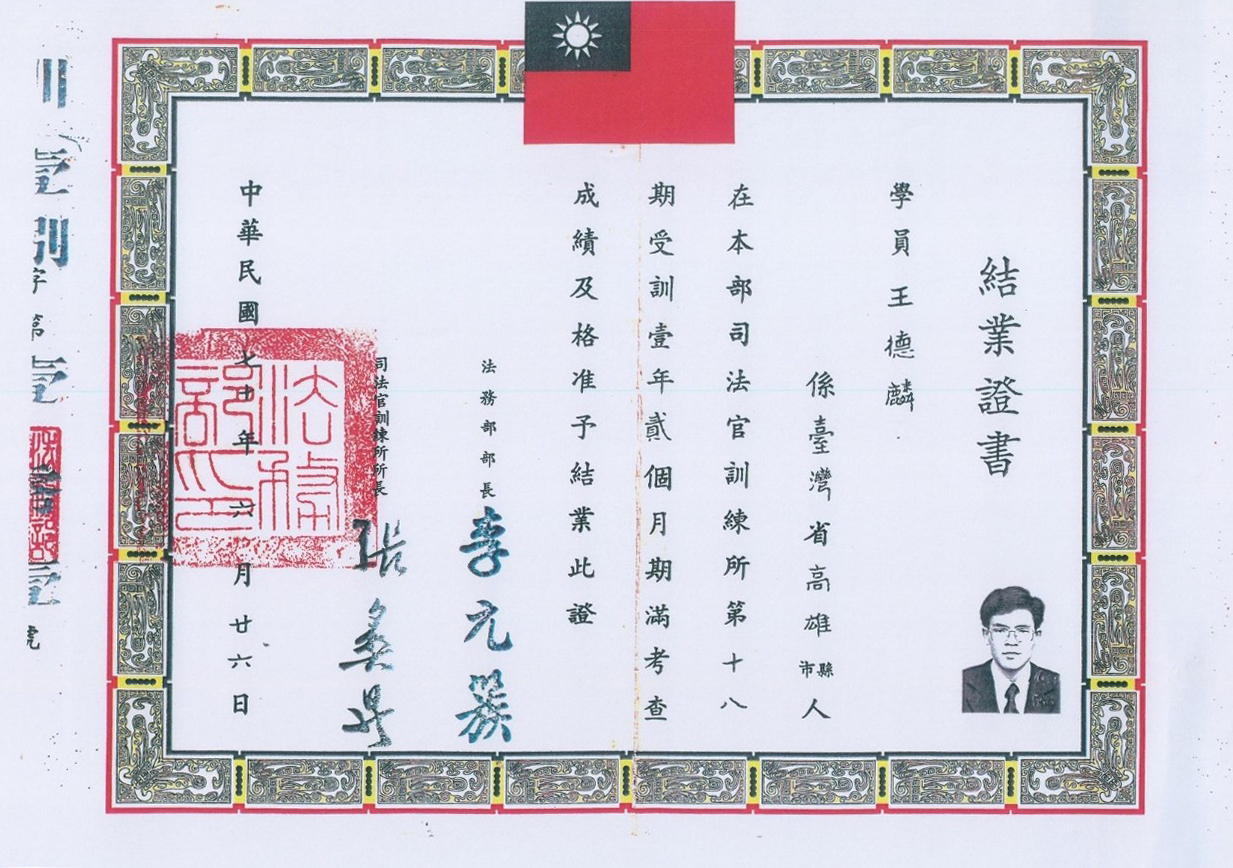 結業證書
學員王德麟
係臺灣省高雄縣市人
在本部司法官訓練所第十八
期受訓壹年貳個月期滿考查
成績及格准予結業此證
法務部部長李元簇
司法官訓練所所長
中華民國七十年六月廿六日
法務部印
字第
號